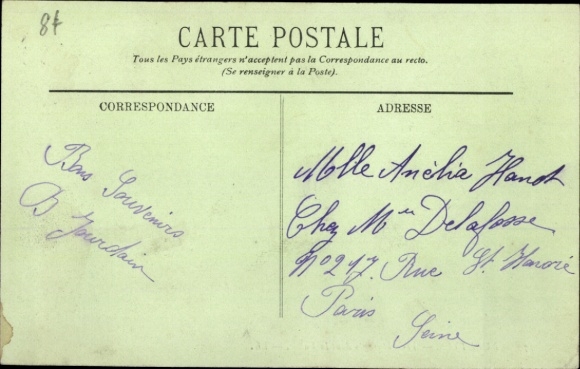 8f
CARTE POSTALE
Tous les Pays étrangers n'acceptent pas la Correspondance au recto.
(Se renseigner à la Poste).
CORRESPONDANCE
Bons Souvenirs
B Jourdain
ADRESSE
Mlle Anèlia Hanot
Chez Mme Delafosse
No 217. Rue St. Honoré
Paris
Seine